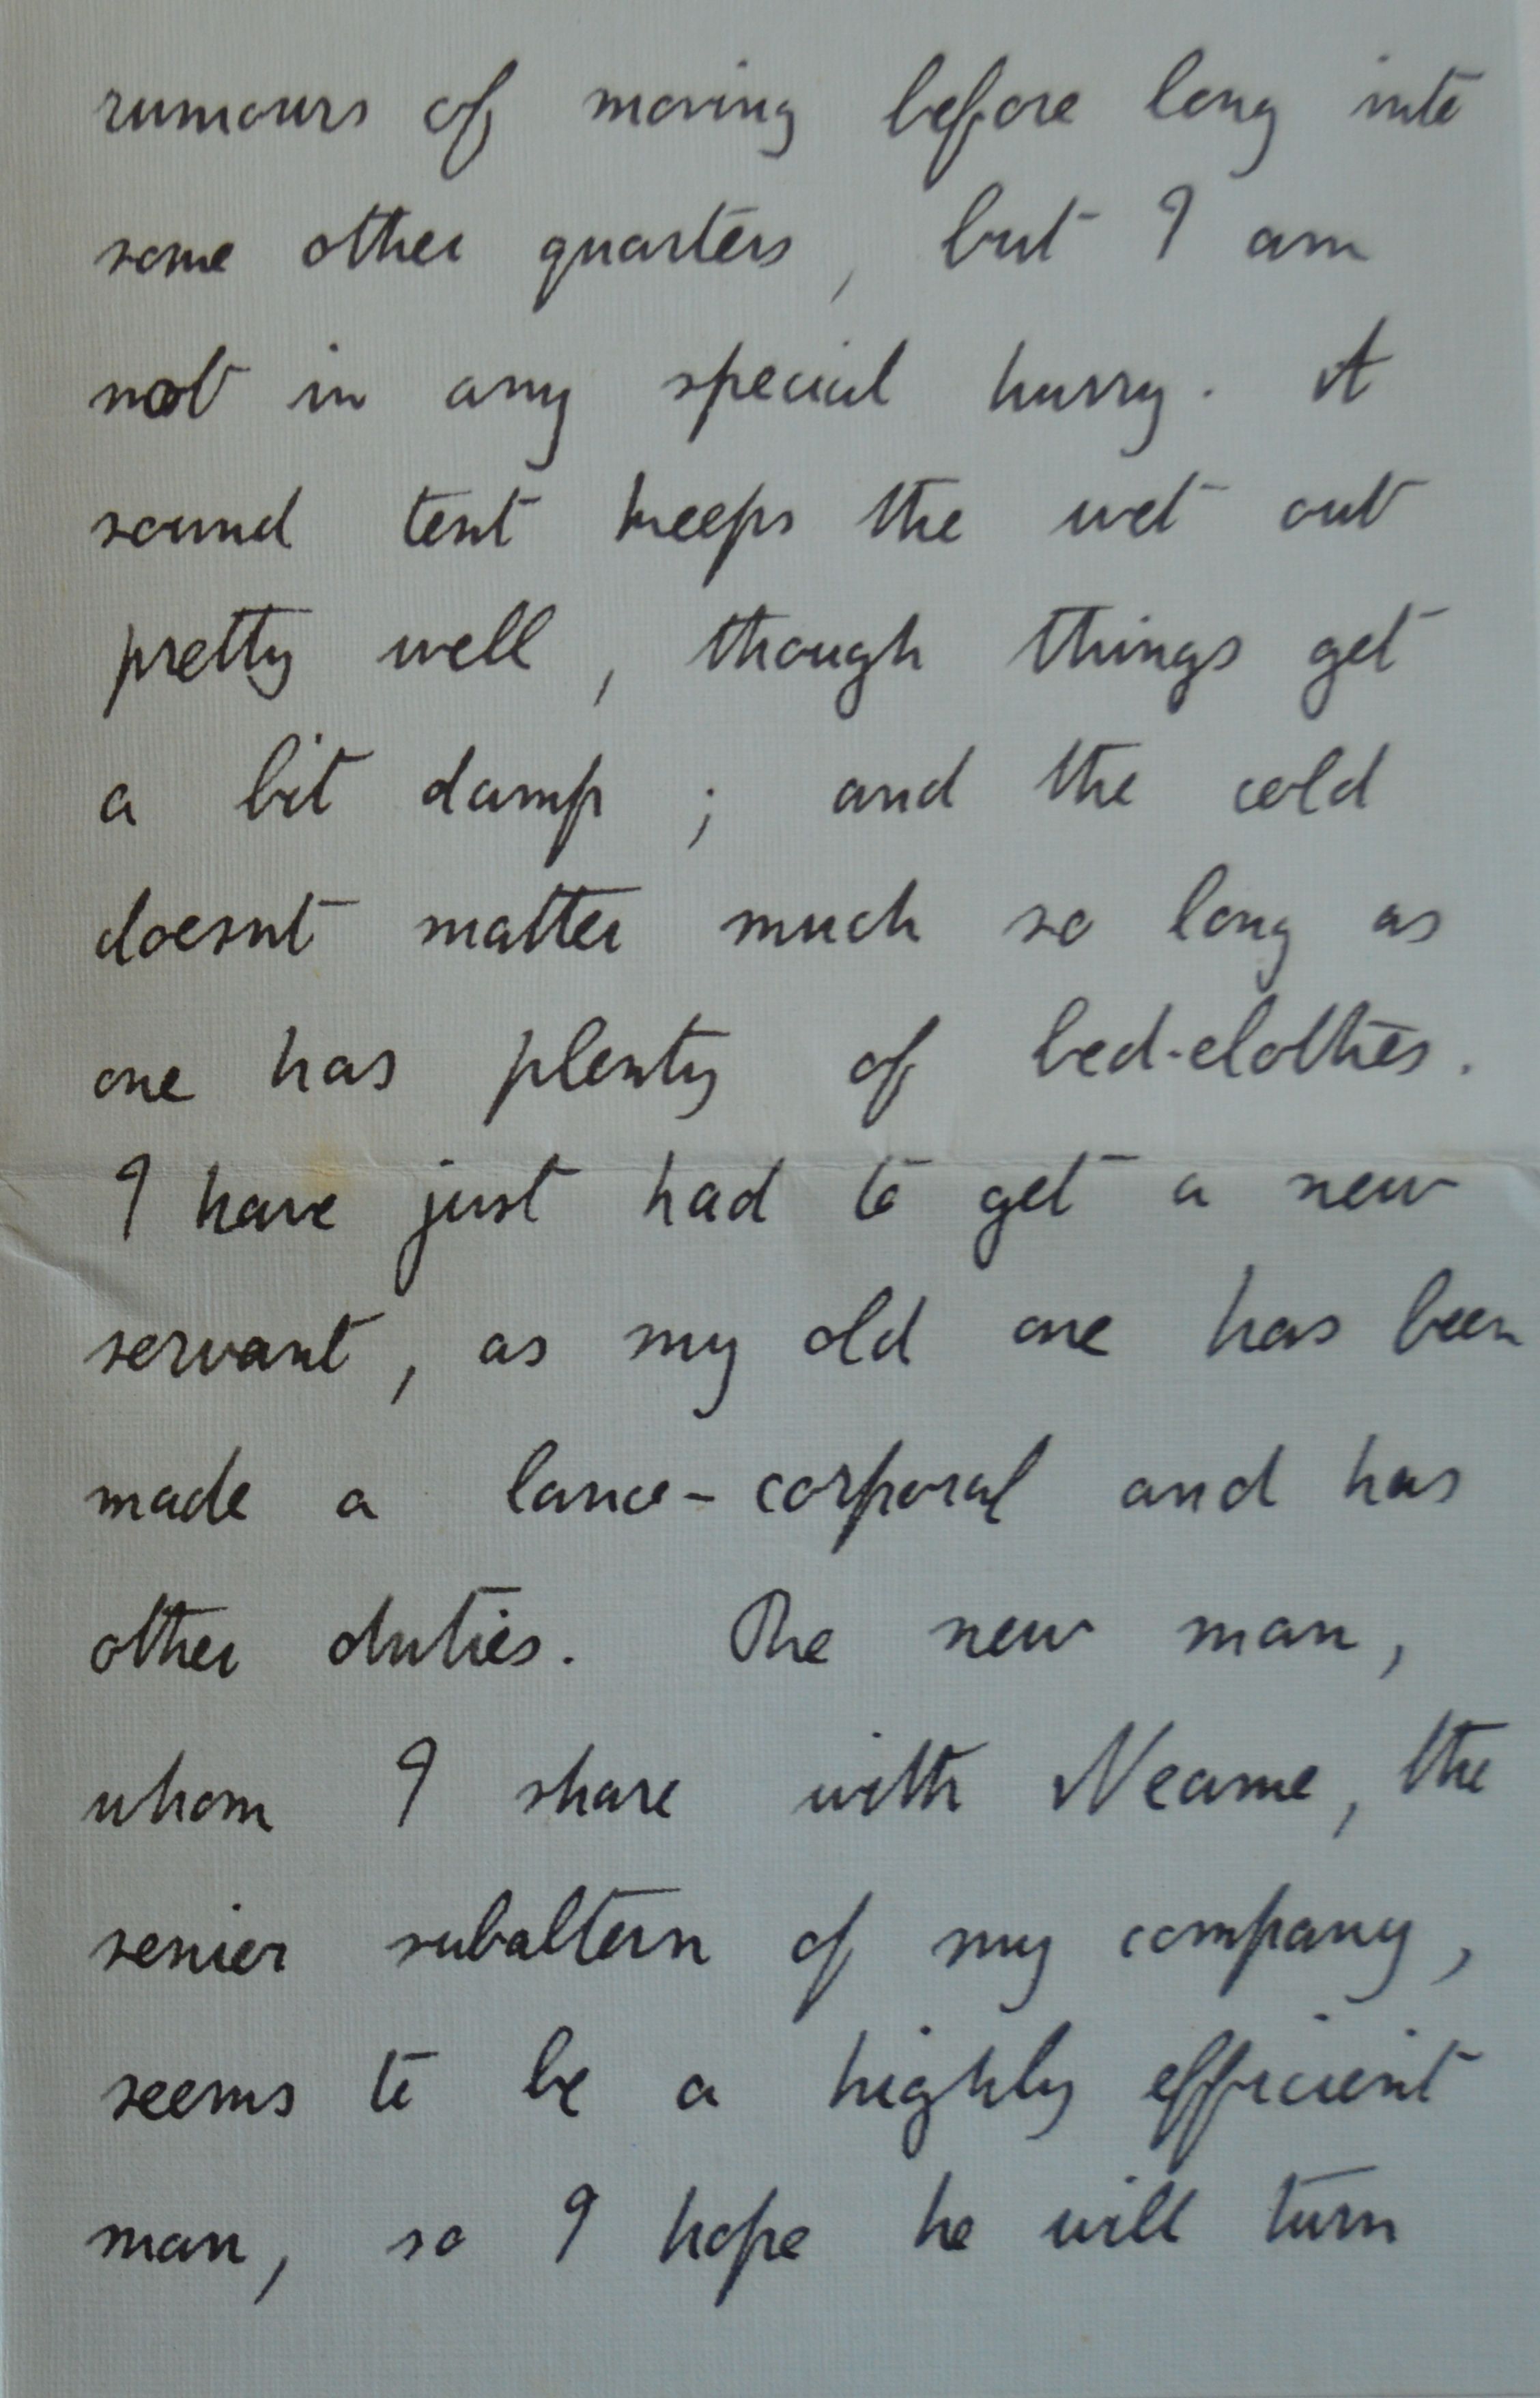 rumours of moving before long into
some other quarters, but I am
not in any special hurry. A
sound tent keeps the wet out
pretty well, though things get
a bit damp; and the cold
doesnt matter much so long as
one has plenty of bed-clothes.
I have just had to get a new
servant, as my old one has been
made a lance-corporal and has
other duties. The new man,
whom I share with Neame, the
senior subaltern of my company,
seems to be a highly efficient
man, so I hope he will turn